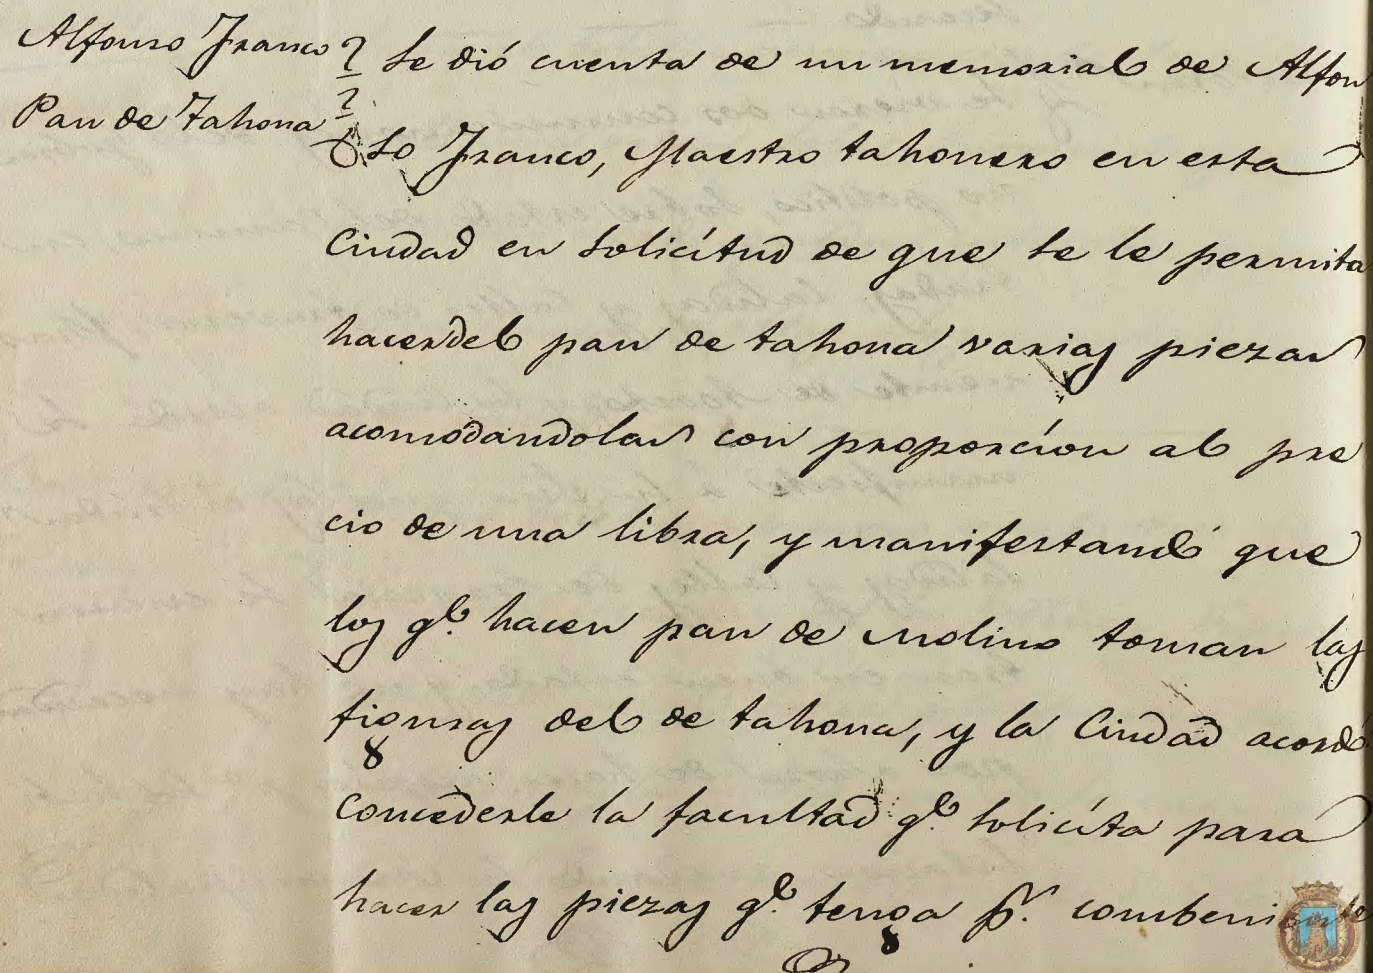 Alfonso Franco
Pan de Tahona
Se dió cuenta de un memorial de Alfon
so Franco, Maestro tahonero en esta
Ciudad en solicitud de que se le permita
hacer del pan de tahona varias piezas
acomodandolas con proporcion al pre
cio de una libra, y manifestando que
los qe. hacen pan de molino toman las
figuras del de tahona, y la Ciudad acordó
Concederle la facultad qe. solicita para
hacer las piezas qe. tenga pr. combeniente